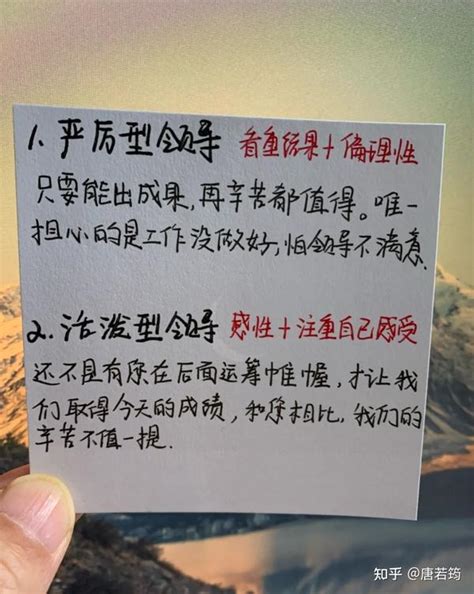 1、严厉型领导 看重结果+偏理性
只要能出成果,再辛苦都值得。唯一
担心的是工作没做好,怕领导不满意.
2、活泼型领导 感性+注重自己感受
还不是有您在后面运筹帷幄,才让我
们取得今天的成绩,和您相比,我们的
辛苦不值一提.
知乎 @唐若筠